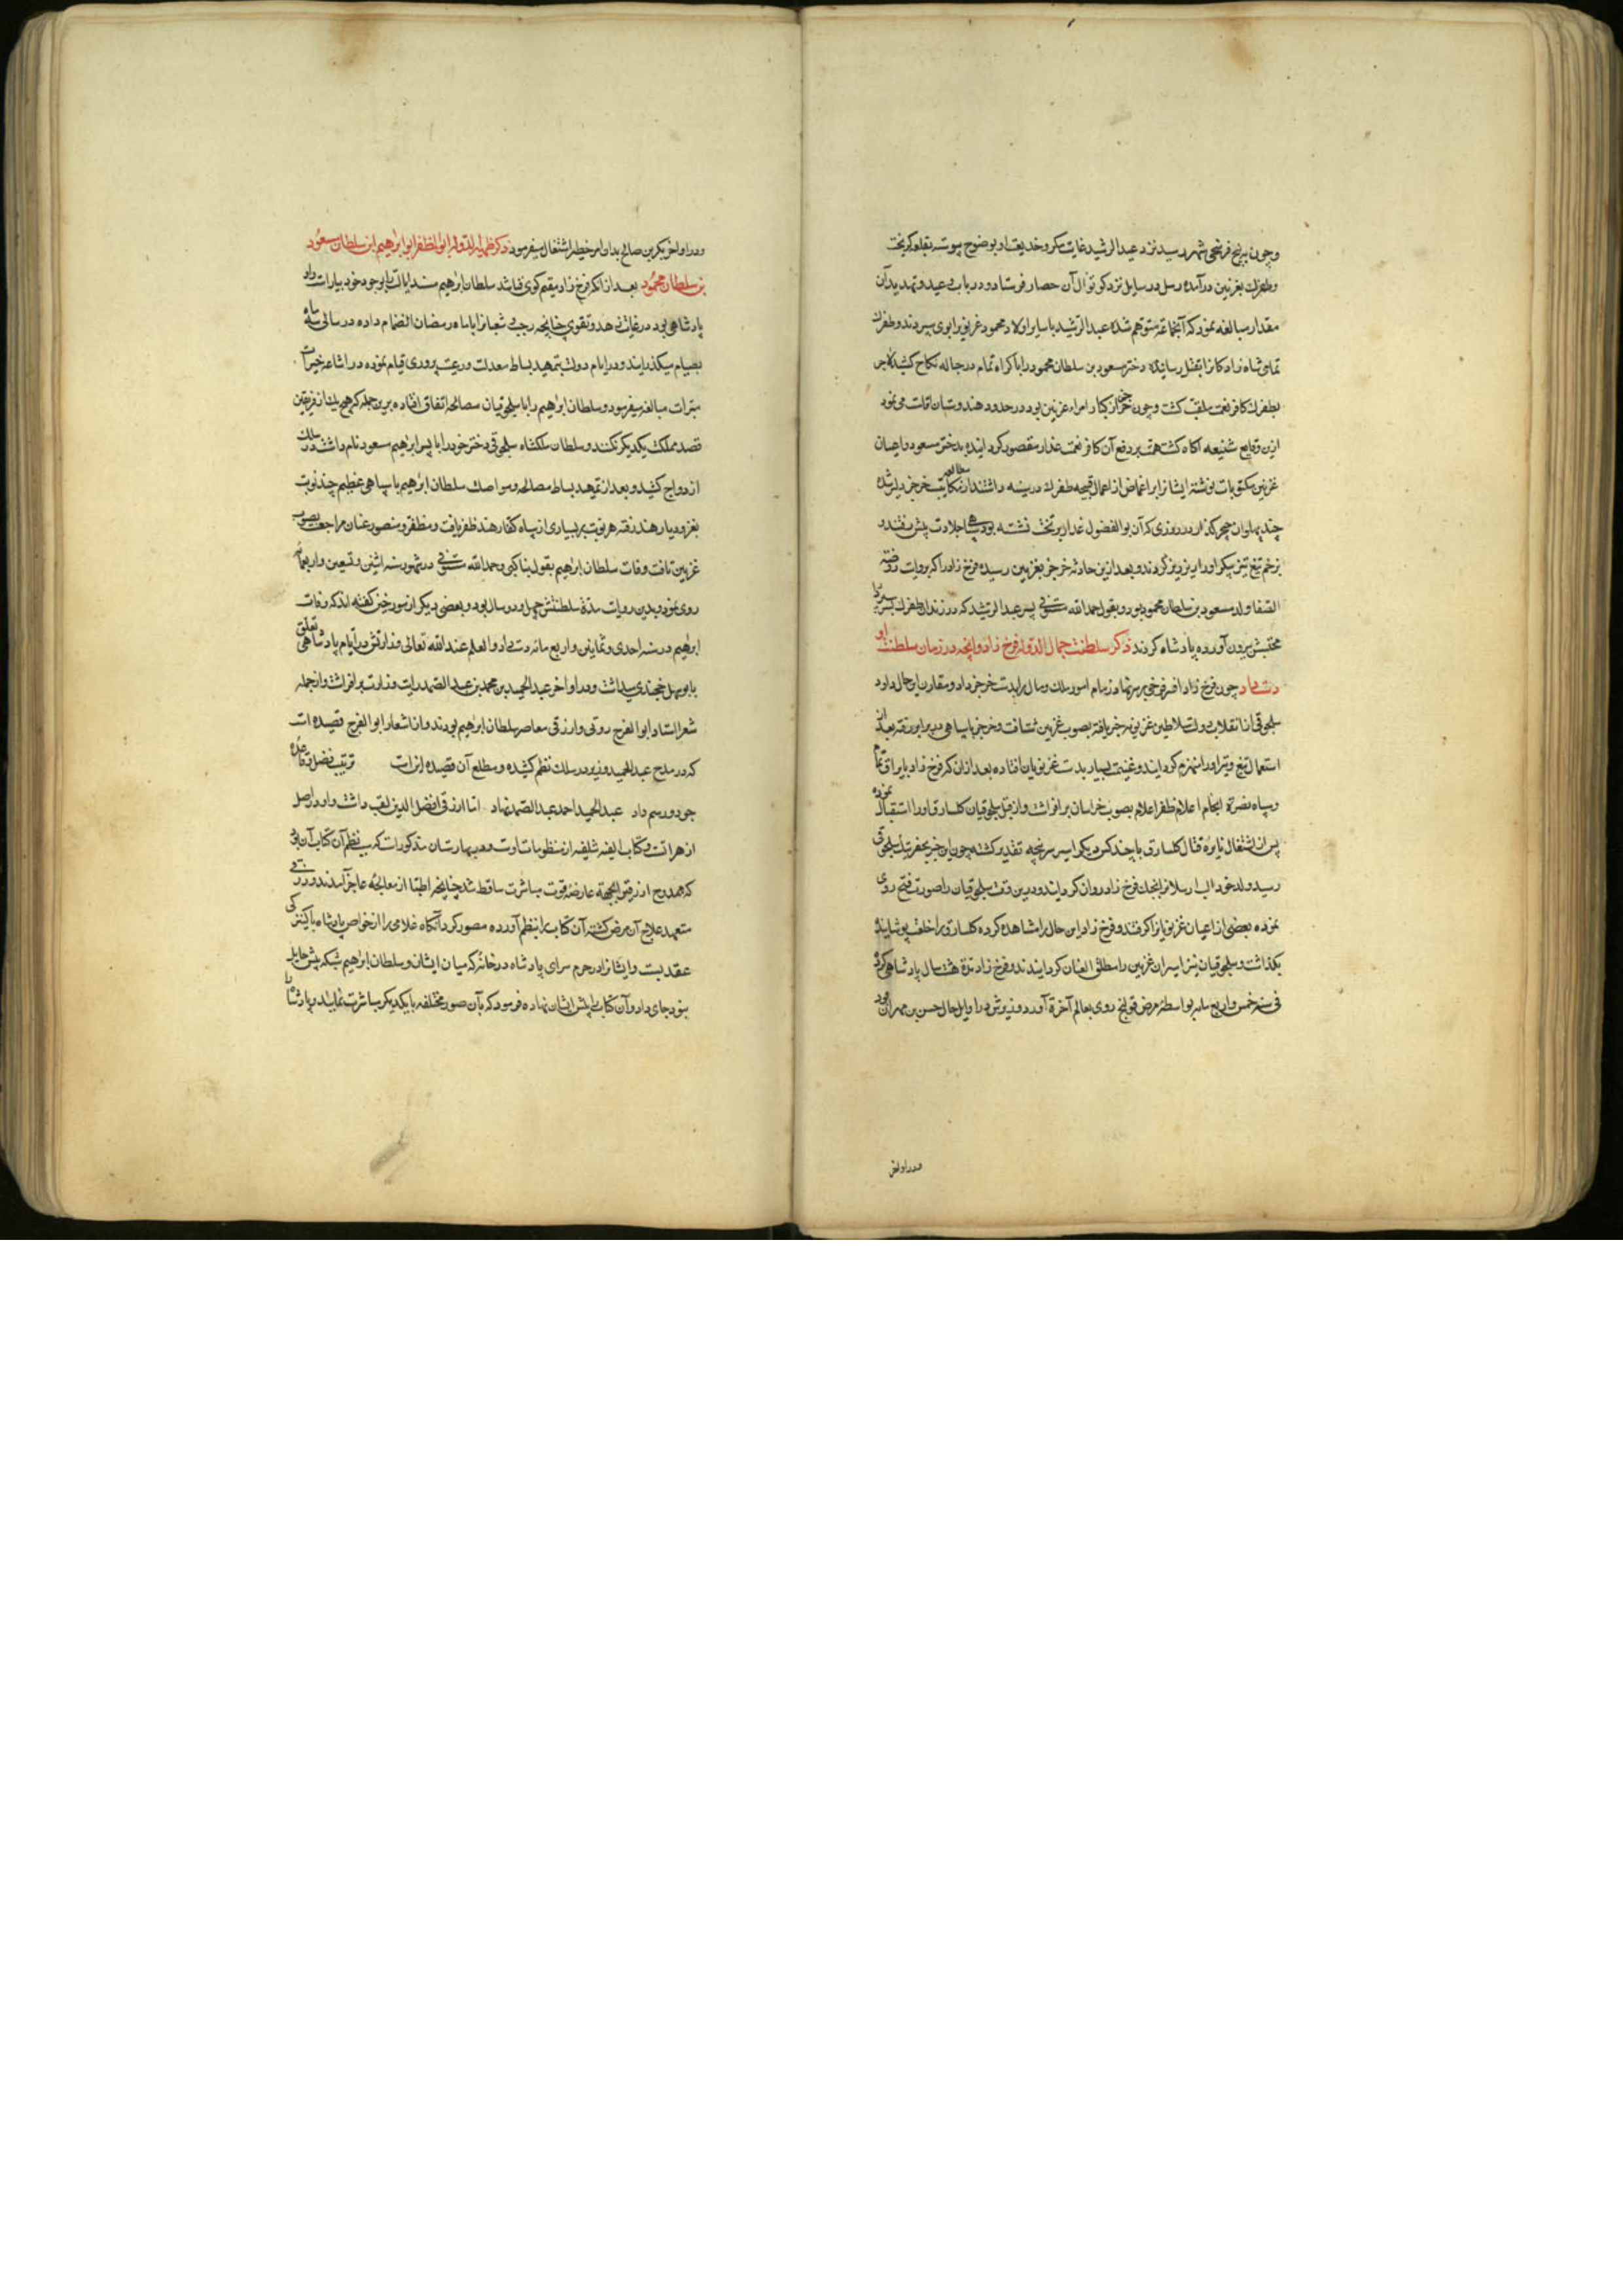 وچون به پنج فرسخی شهر رسید نزد عبدالرشید غایت مکر و خدیعت او بوضوح پیوسته بقلعه گریخت
و طغرل بغزنین درآمده رسل و رسایل نزد کوتوال آن حصار فرستاد و در باب وعید و تهدید آن
مقدار مبالغه نمود که آنجماعة متوهم شده عبدالرشید با سایر اولاد محمود غزنوی را بوی سپردند و طغرل
تمامی شاه زادکانرا بقتل رسانیده دختر مسعود بن سلطان محمود را باکراه تمام در حباله نکاح کشید لاجرم
بطغرل کافر نعمت ملقب کشت و چون خرخیز از کبار امراء غزنین بود در حدود هندوستان اقامت می نمود
ازین وقایع شنیعه آکاه کشت همت بر دفع آن کافر نعمت غدار مقصور کردانیده بدختر مسعود و اعیان
غزنین مکتوبات نوشته ایشانرا بر اغماض از اعمال قبیحه طغرل در سینه داشتند از مطالعه مکاتیب خرخیز دلیر شده
چند پهلوان خنجر گذار در روزی که آن بوالفضول غدار بر تخت نشسته بود پای جلادت پیش نهند و
بزخم تیغ تیز پیکر او را ریز ریز کردند و بعد ازین حادثه خرخیز بغزنین رسیده فرخ زاد را که بروایت روضة
الصفا ولد مسعود بن سلطان محمود بود و بقول حمدالله مستوفی پسر عبدالرشید که در زندان طغرل بسر می برد از
محبس بیرون آورده پادشاه کردند ذکر سلطنت جمال الدوله فرخ زاد و آنچه در زمان سلطنت او
دست داد چون فرخ زاد افسر فرخی بر سر نهاد زمام امور ملک و مال را بدست خرخیز داد و مقارن این حال داود
سلجوقی از انقلاب دولت سلاطین غزنویه خبر یافته بصوب غزنین شتافت و خرخیز با سپاهی در برابر رفته بعد از
استعمال تیغ و تیر او را منهزم کردانید و غنیمت بسیار بدست غزنویان افتاده بعد ازان که فرخ زاد با یراق تمام
و سپاه نصرة انجام اعلام ظفر اعلام بصوب خراسان برافراشت و از قبل سلجوقیان کلسارق او را استقبال نموده
پس از اشتغال نایره قتال کلسارق با چند کس دیکر اسیر سر پنجه تقدیر کشته چون این خبر بجغربیک سلجوقی
رسید ولد خود الب ارسلانرا بجنک فرخ زاد روان کردانید و درین وقت سلجوقیان را صورت فتح روی
نموده بعضی از اعیان غزنویانرا کرفتند و فرخ زاد این حال را مشاهده کرده کلسارق را خلعت پوشانیده
بکذاشت و سلجوقیان نیز اسیران غزنین را مطلق العنان کردانیدند و فرخ زاد مدة هشت سال پادشاهی کرده
فی سنه خمس و اربع مایه بواسطه مرض قولنج روی بعالم آخرة آورد و وزیرش در اوایل حال حسن بن مهران بود
و در اواخر
و در اواخر بکر بن صالح بدان امر خطیر اشتغال میفرمود ذکر ظهیر الدوله ابو المظفر ابو ابراهیم ابن سلطان مسعود
بن سلطان محمود بعد از انکه فرخ زاد مقیم کوی فنا شد سلطان ابراهیم مسند ایالت را بوجود خود بیاراست و او
پادشاهی بود در غایت زهد و تقوی چنانچه رجب و شعبانرا با ماه رمضان انضمام داده در سالی سه ماه
بصیام میکذرانید و در ایام دولت بتمهید بساط معدلت و رعیت پروری قیام نموده در اشاعه خیرات
مبرات مبالغه میفرمود و سلطان ابراهیم را با سلجوقیان مصالحه اتفاق افتاده برین جمله که هیچ یک از فریقین
قصد مملکت یکدیکر نکنند و سلطان ملکشاه سلجوقی دختر خود را با پسر ابراهیم مسعود نام داشت در سلک
ازدواج کشید و بعد از تمهید بساط مصالحه و مواصلت سلطان ابراهیم با سپاهی عظیم چند نوبت
بغزو دیار هند رفته هر نوبت بر بسیاری از سپاه کفار هند ظفر یافت و مظفر و منصور عنان مراجعت بصوب
غزنین تافت وفات سلطان ابراهیم بقول بناکتی و حمدالله مستوفی در شهور سنه اثنین و تسعین و اربعمائه
روی نمود و بدین روایت مدة سلطنتش چهل و دو سال بود و بعضی دیکر از مورخین کفته اند که وفات
ابراهیم در سنه احدی و ثمانین و اربع مائه دست داد و العلم عند الله تعالی وزارتش در ایام پادشاهی تعلق
بابوسهل خجندی میداشت و در اواخر عبدالحمید بن محمد بن عبدالصمد رایت وزارت برافراشت و از جمله
شعرا استاد ابوالفرج رونی و ارزقی معاصر سلطان ابراهیم بودند و از اشعار ابوالفرج قصیده است
که در مدح عبدالحمید وزیر در سلک نظم کشیده و مطلع آن قصیده اینست ترتیب فضل و قاعده
جود و رسم داد عبدالحمید احمد عبدالصمد نهاد اما ارزقی افضل الدین لقب داشت و او در اصل
از هراتست و کتاب الفیه شلفیه از منظومات اوست و در بهارستان مذکورست که سبب نظم آن کتاب آن بود
که ممدوح ارزقی را بجهة عارضه قوت مباشرت ساقط شد چنانچه اطبا از معالجه عاجز آمدند و ارزقی
متعهد علاج آن مرض کشته آن کتاب را بنظم آورده مصور کرد آنکاه غلامی را از خواص پادشاه با کنیزکی
عقد بست و ایشانرا در حرم سرای پادشاه در خانه که میان ایشان و سلطان ابراهیم شبکه بیش حایل
نبود جای داد و آن کتاب را پیش ایشان نهاده فرمود که بآن صور مختلفه با یکدیکر مباشرت نمایند و پادشاه را